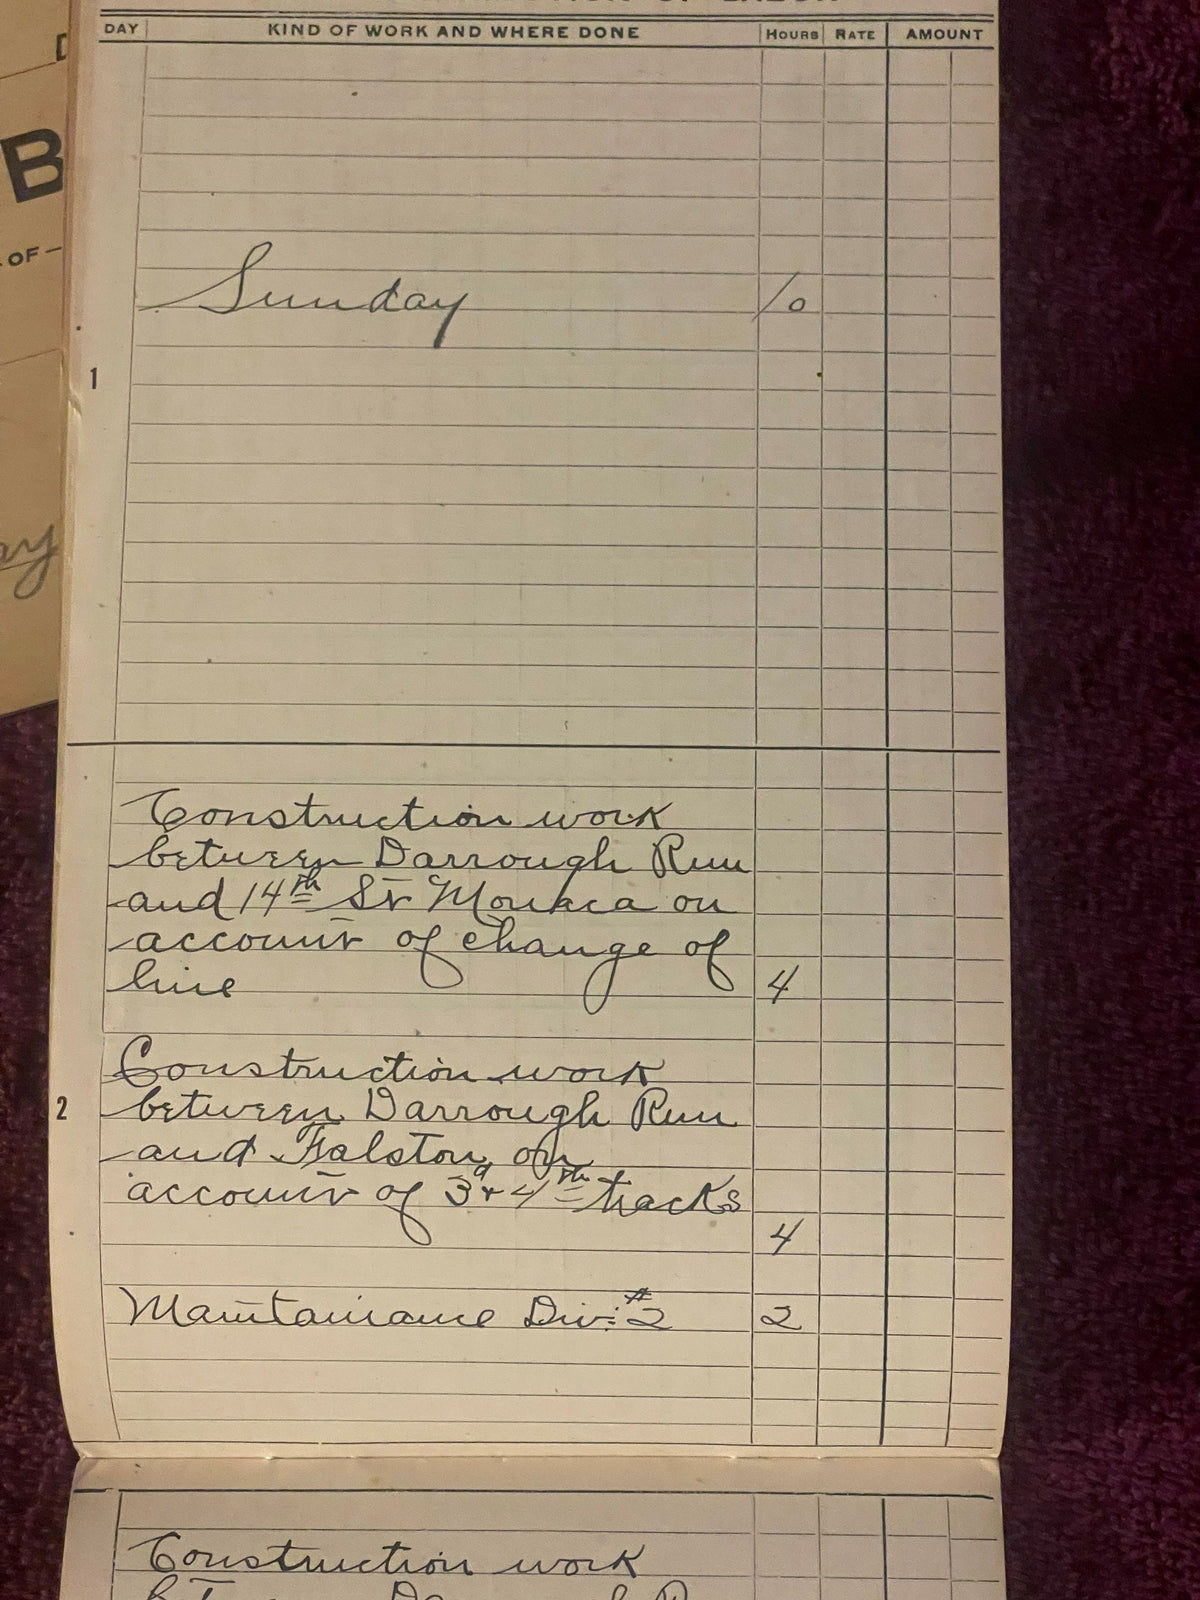 DAY KIND OF WORK AND WHERE DONE HOURS RATE AMOUNT
B
OF —
Sunday 10
1
Construction work
between Darrough Run
and 14th St Monaca on
account of change of
line 4
Construction work
2 between Darrough Run
and Falston, on
account of 3d & 4th tracks
4
Maintainance Div. #2 2
Construction work